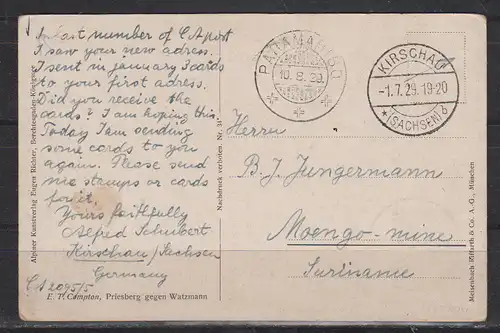 In last number of CA post
I saw your new adress.
I sent in january 3 cards
to your first adress.
Did you receive the
cards? I am hoping this.
Today I am sending
some cards to you
again. Please send
me stamps or cards
for it.
Yours faithfully
Alfred Schubert
Kirschau/Sachsen
Germany
CA 2095/5
E. T. Compton, Priesberg gegen Watzmann
Alpiner Kunstverlag Eugen Richter, Berchtesgaden-Königssee
Nachdruck verboten. Nr.
PARAMARIBO
10.8.29
KIRSCHAU
-1.7.29.19-20
* (SACHSEN) b
Herrn
B. J. Jungermann
Moengo-mine
Suriname
Meisenbach Riffarth & Co. A.-G., München